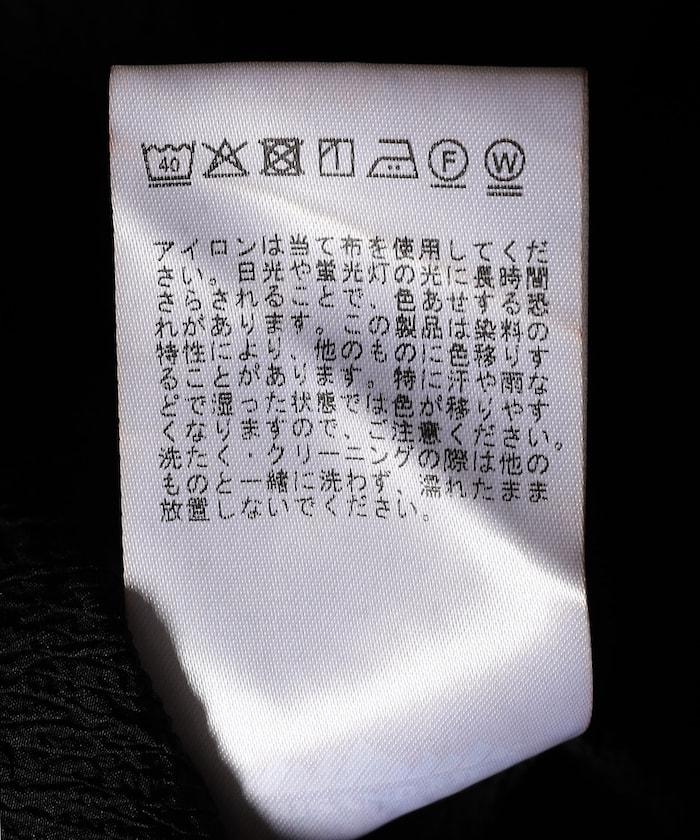 40 F W
アイロンは当て布を使用してくだ
さい。日光や蛍光灯の光に長時間
さらされることで、色あせする恐
れがあります。この製品は染料の
特性により、他のものに色移りす
ることがあります。特に汗や雨な
どで湿った状態では色が移りやす
くなりますのでご注意ください。
洗たく・クリーニングの際は他の
ものと一緒に洗わず、濡れたまま
放置しないでください。